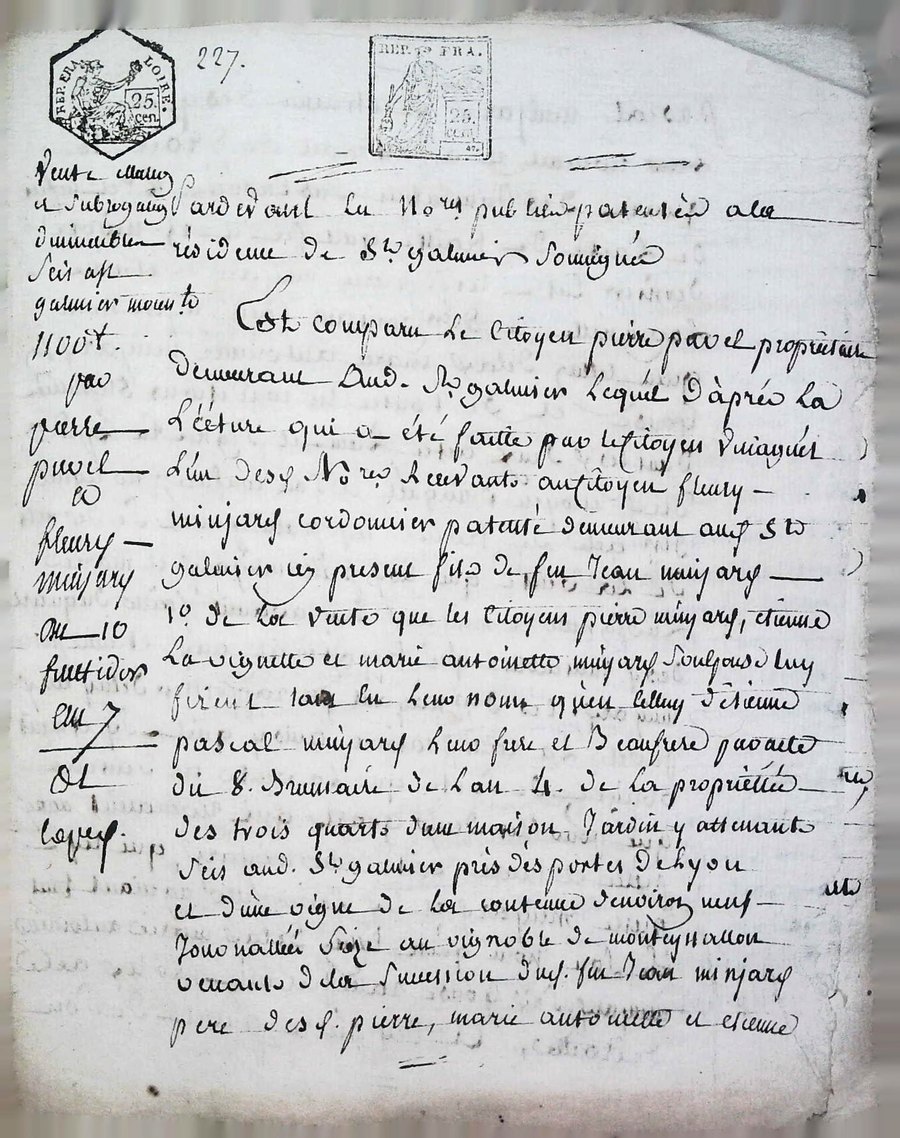 REP. FRA. LOIRE.
25.
cen.
227.
REP. FRA.
25.
cen
Vente
et subrogation
d'immeubles
seis a st
galmier
1100tt.
par
pierre
pavel
a
fleury
minjard
Du 10
fructidor
an 7
Et
Pardevant les No.res publics patentés a la
résidence de St. galmier soussignés
Est comparu le Citoyen pierre pavel propriétaire
demeurant aud. St. galmier lequel d'après la
Lécture qui a été faitte par le Citoyen
L'un desd. No.res Recevants au Citoyen fleury
minjard cordonnier patenté demeurant aud St
galmier icy present fils de feu Jean minjard
1o. de La vente que les Citoyens pierre minjard, etienne
La vignette et marie antoinette minjard Son Epouse
firent tant en leur nom qu'en Celluy d'étienne
pascal minjard leur frere et Beaufrere par acte
du 8. Brumaire de L'an 4. de La propriétée
des trois quarts d'une maison Jardin y attenants
seis aud. St. galmier près dès portes de Lyon
et d'une vigne de La contenue d'environ neuf
Journallées au vignoble de
venants de la Succession dud. feu Jean minjard
pere desd. pierre, marie antoinette et etienne